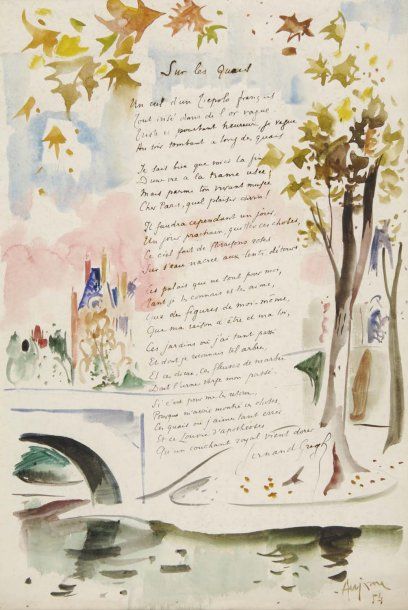 Sur les quais
Un ciel d'un Tiepolo français
Tout irisé dans de l'or vague
Triste et pourtant heureux, je vague
Au soir tombant le long des quais
Je sais bien que voici la fin
D'une vie à la trame usée ;
Mais parmi ton vivant musée
Cher Paris, quel plaisir divin !
Il faudra cependant un jour,
Un jour prochain, quitter ces choses,
Ce ciel fait de
Sur l'eau nacrée aux lents détours
Ces palais que ne sont pour moi,
Tant je les connais et les aime,
Que des figures de moi-même,
Que ma raison d'être et ma loi,
Ces jardins où j'ai tant passé
Et dont je connais tel arbre,
Et ces doux, ces fleuves de marbre
Dont l'urne verse mon passé.
Si c'est pour me les retirer
Pourquoi m'avoir montré ces choses,
Ces quais où j'aime tant errer
Et ce Louvre d'apothéoses
Qu'un couchant royal vient dorer
Fernand Gregh
54